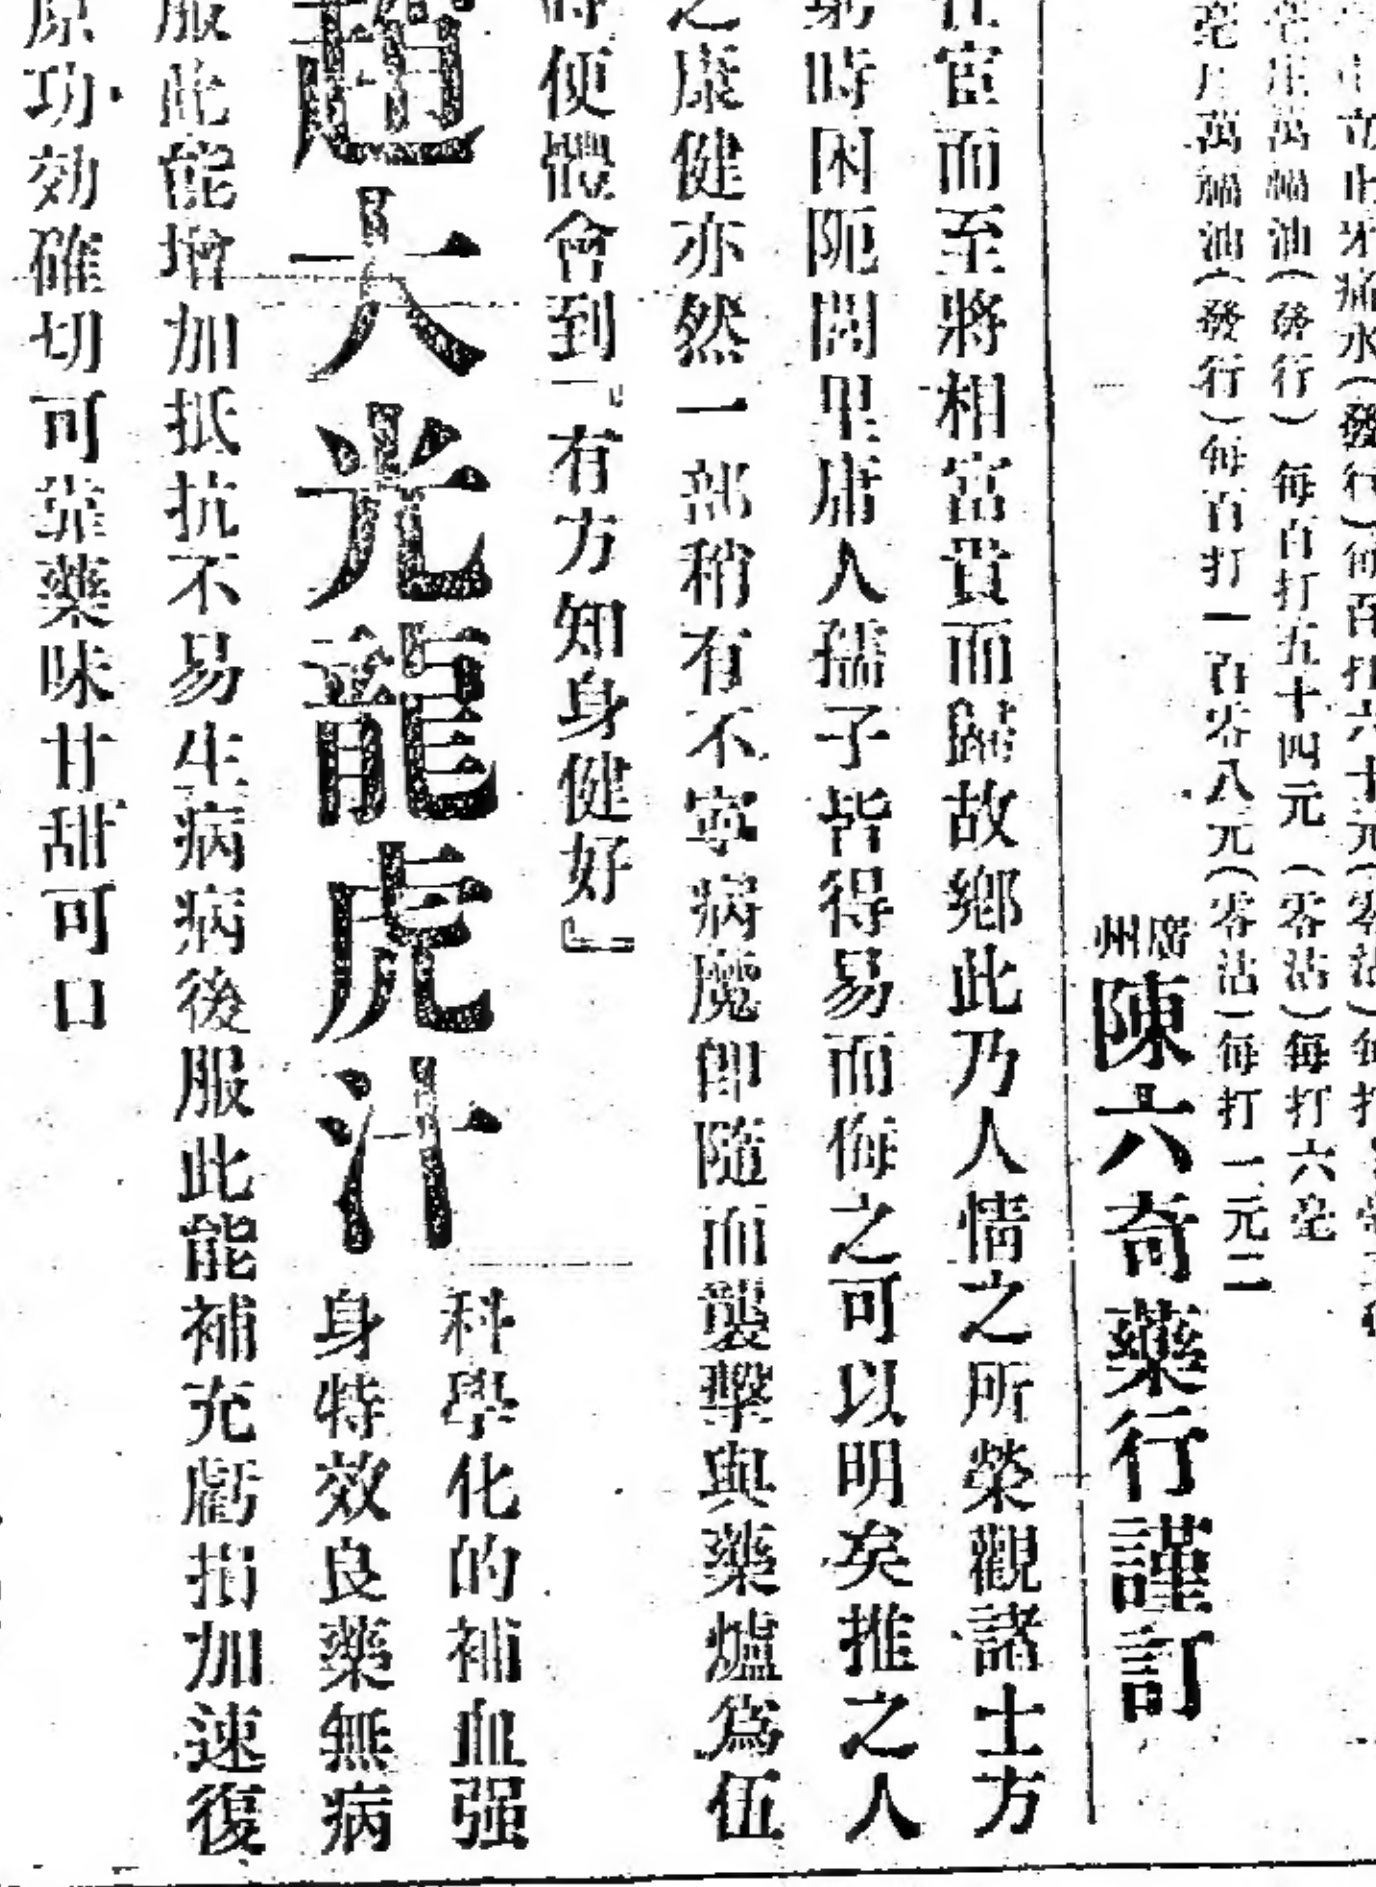 立止牙痛水(發行)每百打六十元(零沽)每打
庄萬福油(發行)每百打五十四元(零沽)每打六毫
毫庄萬福油(發行)每百打一百零八元(零沽)每打一元二
廣州
陳六奇藥行謹訂
仕宦而至將相富貴而歸故鄉此乃人情之所榮觀諸士方
窮時困阨閭里庸人孺子皆得易而侮之可以明矣推之人
之康健亦然一部稍有不寧病魔即隨而襲擊與藥爐爲伍
時便體會到『有方知身健好』
趙大光龍虎汁
科學化的補血强
身特效良藥無病
服此能增加抵抗不易生病病後服此能補充虧損加速復
原功効確切可靠藥味甘甜可口